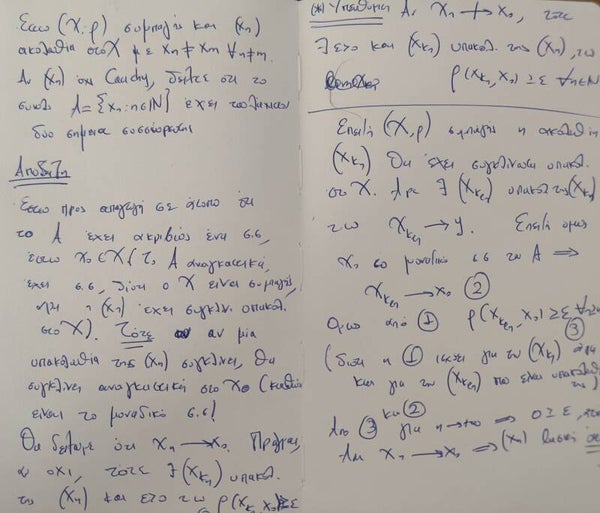 Εστω (X,ρ) συμπαγης και (xₙ)
ακολουθια στο X με xₙ ≠ xₘ ∀n≠m.
Αν (xₙ) οχι Cauchy, δειξτε οτι το
συνολο A = {xₙ : n∈ℕ} εχει τουλαχιστον
δυο σημεια συσσωρευσης
Αποδειξη
Εστω προς απαγωγη σε ατοπο οτι
το A εχει ακριβως ενα σ.σ,
εστω x₀∈X (το A αναγκαστικα
εχει σ.σ, διοτι ο X ειναι συμπαγης,
αρα η (xₙ) εχει συγκλιν. υπακολ.
στο X). Τότε αν μια
υπακολουθια της (xₙ) συγκλινει, θα
συγκλινει αναγκαστικα στο x₀ (καθως
ειναι το μοναδικο σ.σ!
Θα δειξουμε οτι xₙ → x₀. Πραγματι,
αν οχι, τοτε ∃(xₖₙ) υπακολ.
της (xₙ) και ε>0 τ.ω ρ(xₖₙ, x₀) ≥ ε
(*) Υπενθυμιση Αν xₙ ↛ x₀, τοτε
∃ ε>0 και (xₖₙ) υπακολ. της (xₙ), τ.ω
ρ(xₖₙ, x₀) ≥ ε ∀n∈ℕ
Επειδη (X,ρ) συμπαγης η ακολουθια
(xₖₙ) θα εχει συγκλινουσα υπακολ.
στο X. Αρα ∃ υπακολ της (xₖₙ)
τ.ω → y. Επειδη ομως
x₀ το μοναδικο σ.σ του A ⟹
→ x₀ ②
Ομως απο ① ≥ ε ∀n∈ℕ ③
(διοτι η ① ισχυει για την (xₖₙ) αρα
και για την που ειναι υπακολουθια
της)
Απο ③ και ② για n→+∞ ⟹ 0 ≥ ε,
Αρα xₙ → x₀ ⟹ (xₙ) βασικη